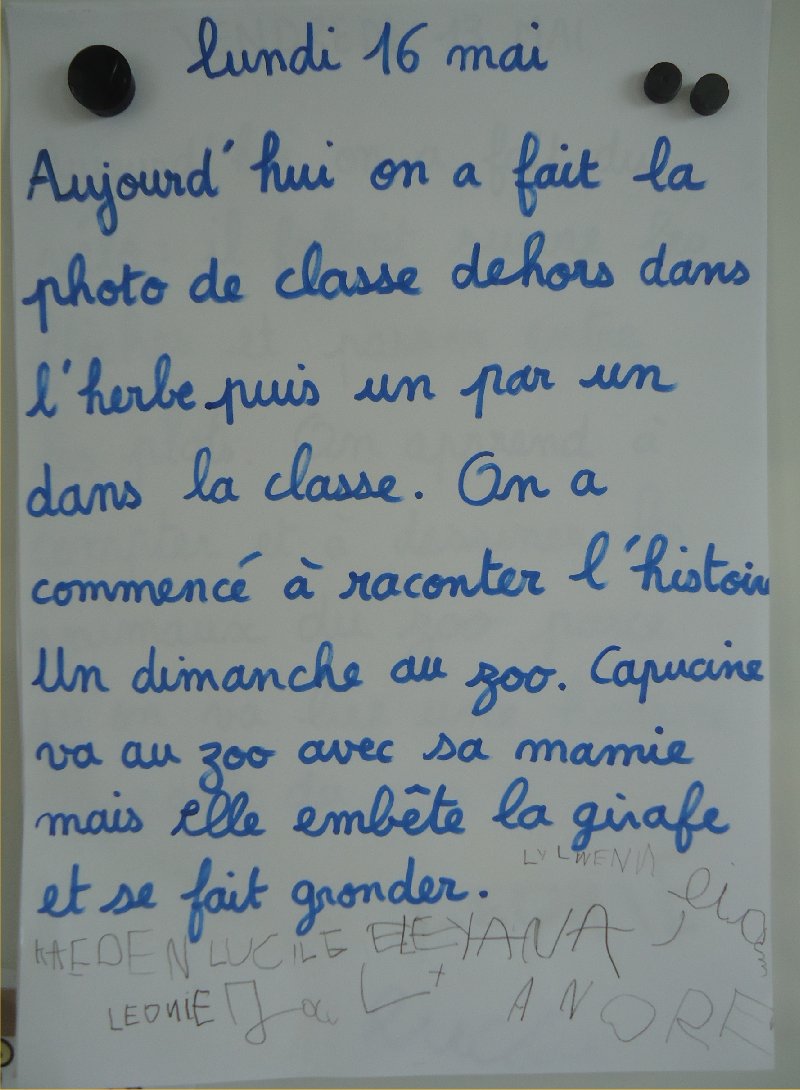 lundi 16 mai
Aujourd'hui on a fait la
photo de classe dehors dans
l'herbe puis un par un
dans la classe. On a
commencé à raconter l'histoire
Un dimanche au zoo. Capucine
va au zoo avec sa mamie
mais elle embête la girafe
et se fait gronder.
LYLWENA
KAEDEN LUCILE ELEYANA
LEONIE ANORE